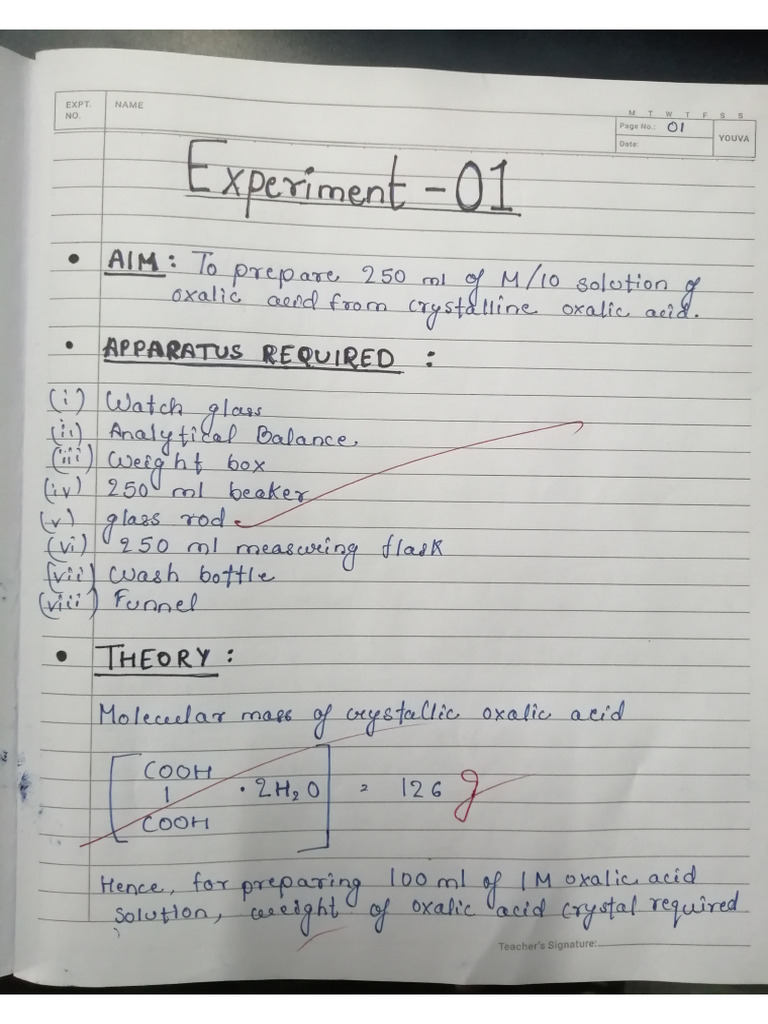 EXPT. NO.
NAME
M T W T F S S
Page No.: 01
Date:
YOUVA
Experiment - 01
• AIM : To prepare 250 ml of M/10 solution of
oxalic acid from crystalline oxalic acid.
• APPARATUS REQUIRED :
(i) Watch glass
(ii) Analytical Balance,
(iii) Weight box
(iv) 250 ml beaker
(v) glass rod
(vi) 250 ml measuring flask
(vii) Wash bottle
(viii) Funnel
• THEORY :
Molecular mass of crystallic oxalic acid
COOH
| · 2H₂O = 126 g
COOH
Hence, for preparing 100 ml of 1M oxalic acid
solution, weight of oxalic acid crystal required
Teacher's Signature: